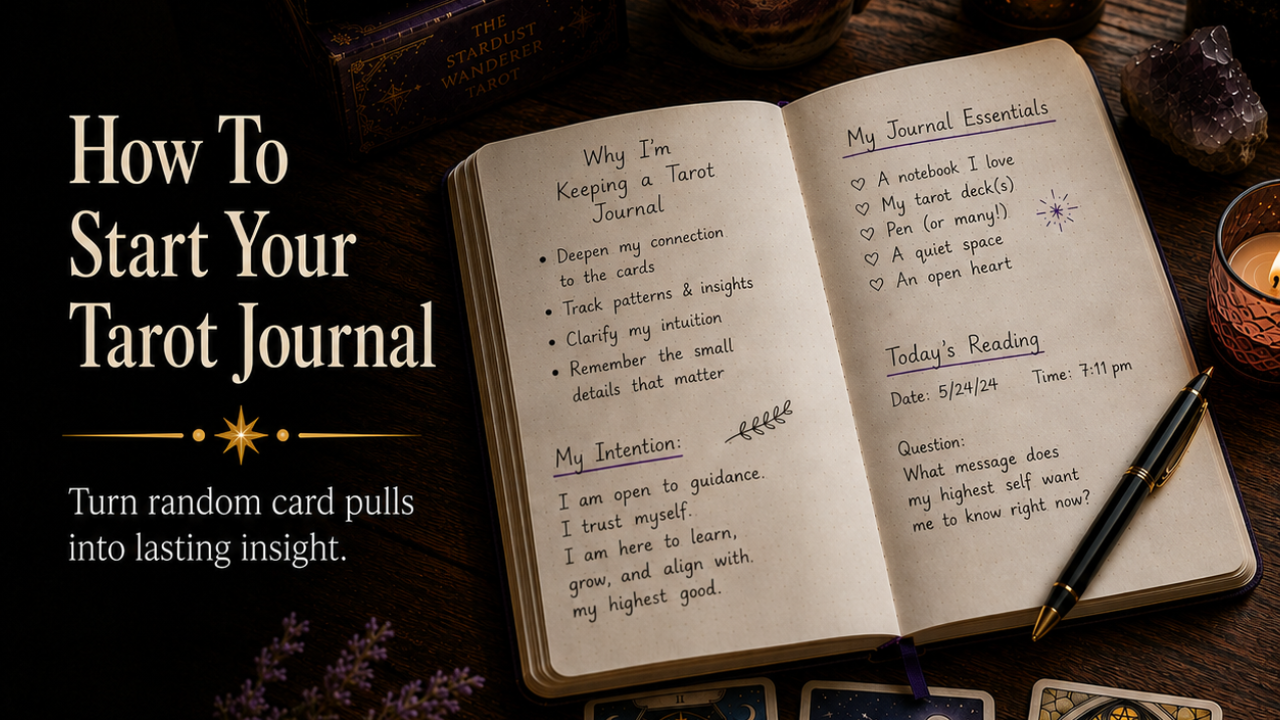 How To
Start Your
Tarot Journal
Turn random card pulls
into lasting insight.
THE
STARDUST
WANDERER
TAROT
Why I'm
Keeping a Tarot
Journal
• Deepen my connection
to the cards
• Track patterns & insights
• Clarify my intuition
• Remember the small
details that matter
My Intention:
I am open to guidance.
I trust myself.
I am here to learn,
grow, and align with.
my highest good.
My Journal Essentials
♡ A notebook I love
♡ My tarot deck(s)
♡ Pen (or many!)
♡ A quiet space
♡ An open heart
Today's Reading
Date: 5/24/24 Time: 7:11 pm
Question:
What message does
my highest self want
me to know right now?
II